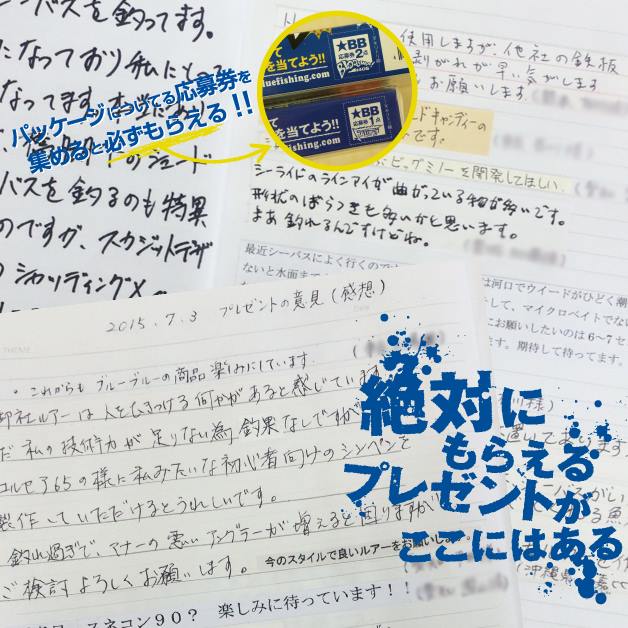 バスを釣ってます。
になっており私にとって
なってます
バスを釣るのも特異
のですが、スカジットデザ
シャッディングメ
パッケージについてる応募券を
集めると必ずもらえる!!
て当てよう!!
を当てよう!!
★BB
応募券2点
bluefishing.com
て当てよう!!
★BB
応募券1点
efishing.com
使用しまるが、他社の鉄板
剥がれが早い気がします
お願いします。
ードキャンディーの
です。
ビッグミノーを開発してほしい。
シーライドのラインアイが曲がっている物が多いです。
形状のばらつきも多いかと思います。
まあ釣れるんですけどね。
最近シーバスによく行くので
ないと水面まで
は河口でウイードがひどく潮
して、マイクロベイトでない
にお願いしたいのは6~7セ
ます。期待して待ってます。
2015.7.3 プレゼントの意見(感想)
・これからもブルーブルーの商品楽しみにしています。
御社ルアーは人をひきつける何かがあると感じています
だ私の技術力が足りない為、釣果なしですが
コルセア65の様に私みたいな初心者向けのシンペンを
製作していただけるとうれしいです。
釣れ過ぎで、マナーの悪いアングラーが増えると困りますが
ご検討よろしくお願いします。
今のスタイルで良いルアーをお願いし
スネコン90? 楽しみに待っています!!
絶対に
もらえる
プレゼントが
ここにはある